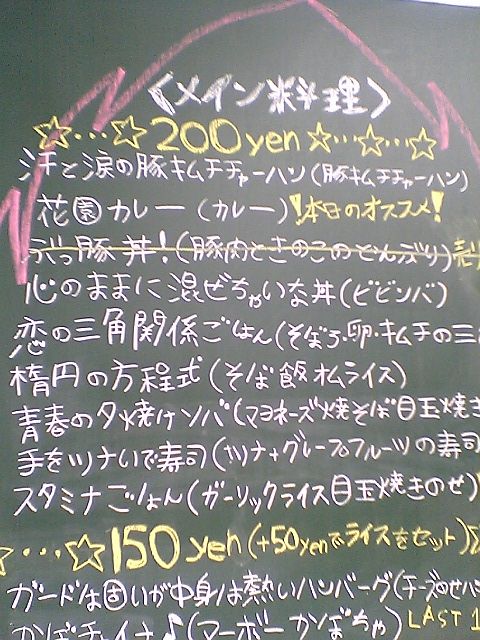 〈メイン料理〉
☆…☆200yen☆…☆…☆
汗と涙の豚キムチチャーハン(豚キムチチャーハン)
花園カレー(カレー)!本日のオススメ!
ぶっ豚丼!(豚肉ときのこのどんぶり)売
心のままに混ぜちゃいな丼(ビビンバ)
恋の三角関係ごはん(そぼろ・卵・キムチの三
楕円の方程式(そば飯オムライス)
青春の夕焼けソバ(マヨネーズ焼そば目玉焼き
手をツナいで寿司(ツナ+グレープフルーツの寿司
スタミナごはん(ガーリックライス目玉焼きのせ)
☆…☆150yen(+50yenでライスをセット)
ガードは固いが中身は熱いハンバーグ(チーズのせハン
かぼチャイナ♪(マーボーかぼちゃ)LAST1